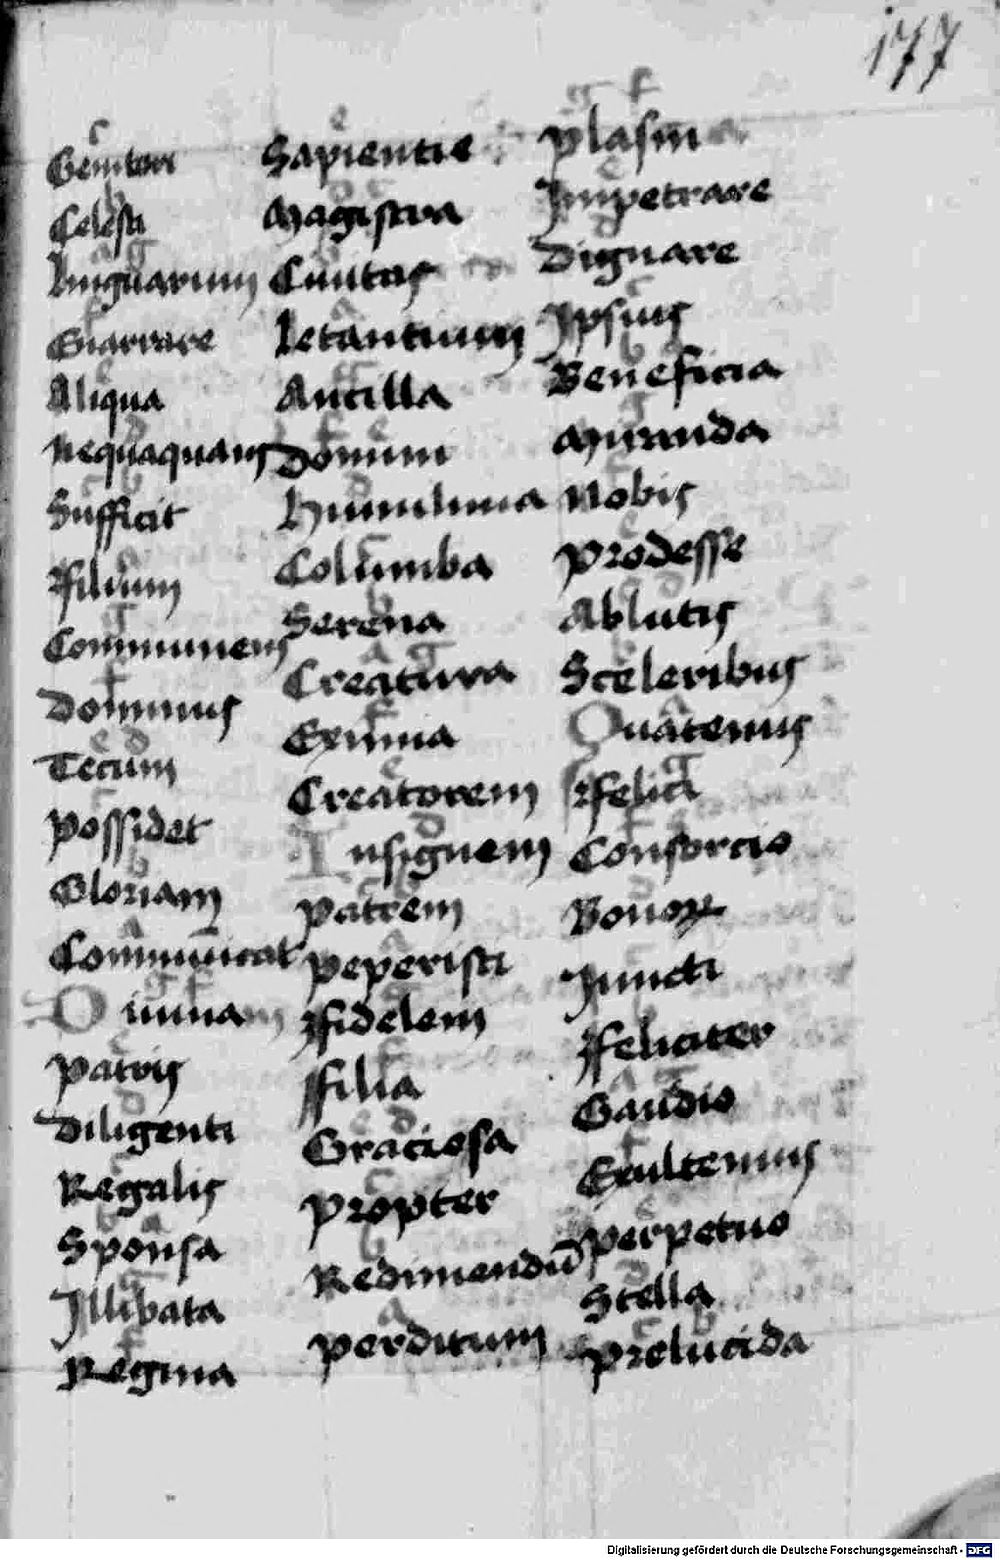 177
Genitori
Celesti
linguarum
Enarrare
Aliqua
Nequaquam
Sufficit
Filium
Communem
Dominus
Tecum
Possidet
Gloriam
Communicat
Omnam
Patris
Diligenti
Regalis
Sponsa
Illibata
Regina
Sapientie
Magistra
Civitas
letantium
Ancilla
Domini
Humilima
Columba
Serena
Creatura
Eximia
Creatorem
Insignem
Patrem
Peperisti
Fidelem
Filia
Graciosa
Propter
Redimendū
Perditum
Plasma
Impetrare
Dignare
Ipsius
Beneficia
Miranda
Nobis
Prodesse
Ablutis
Sceleribus
Quatenus
Felici
Consorcio
Bonoꝝ
Iuncti
Feliciter
Gaudio
Exultemus
Perpetuo
Stella
Prelucida
Digitalisierung gefördert durch die Deutsche Forschungsgemeinschaft - DFG